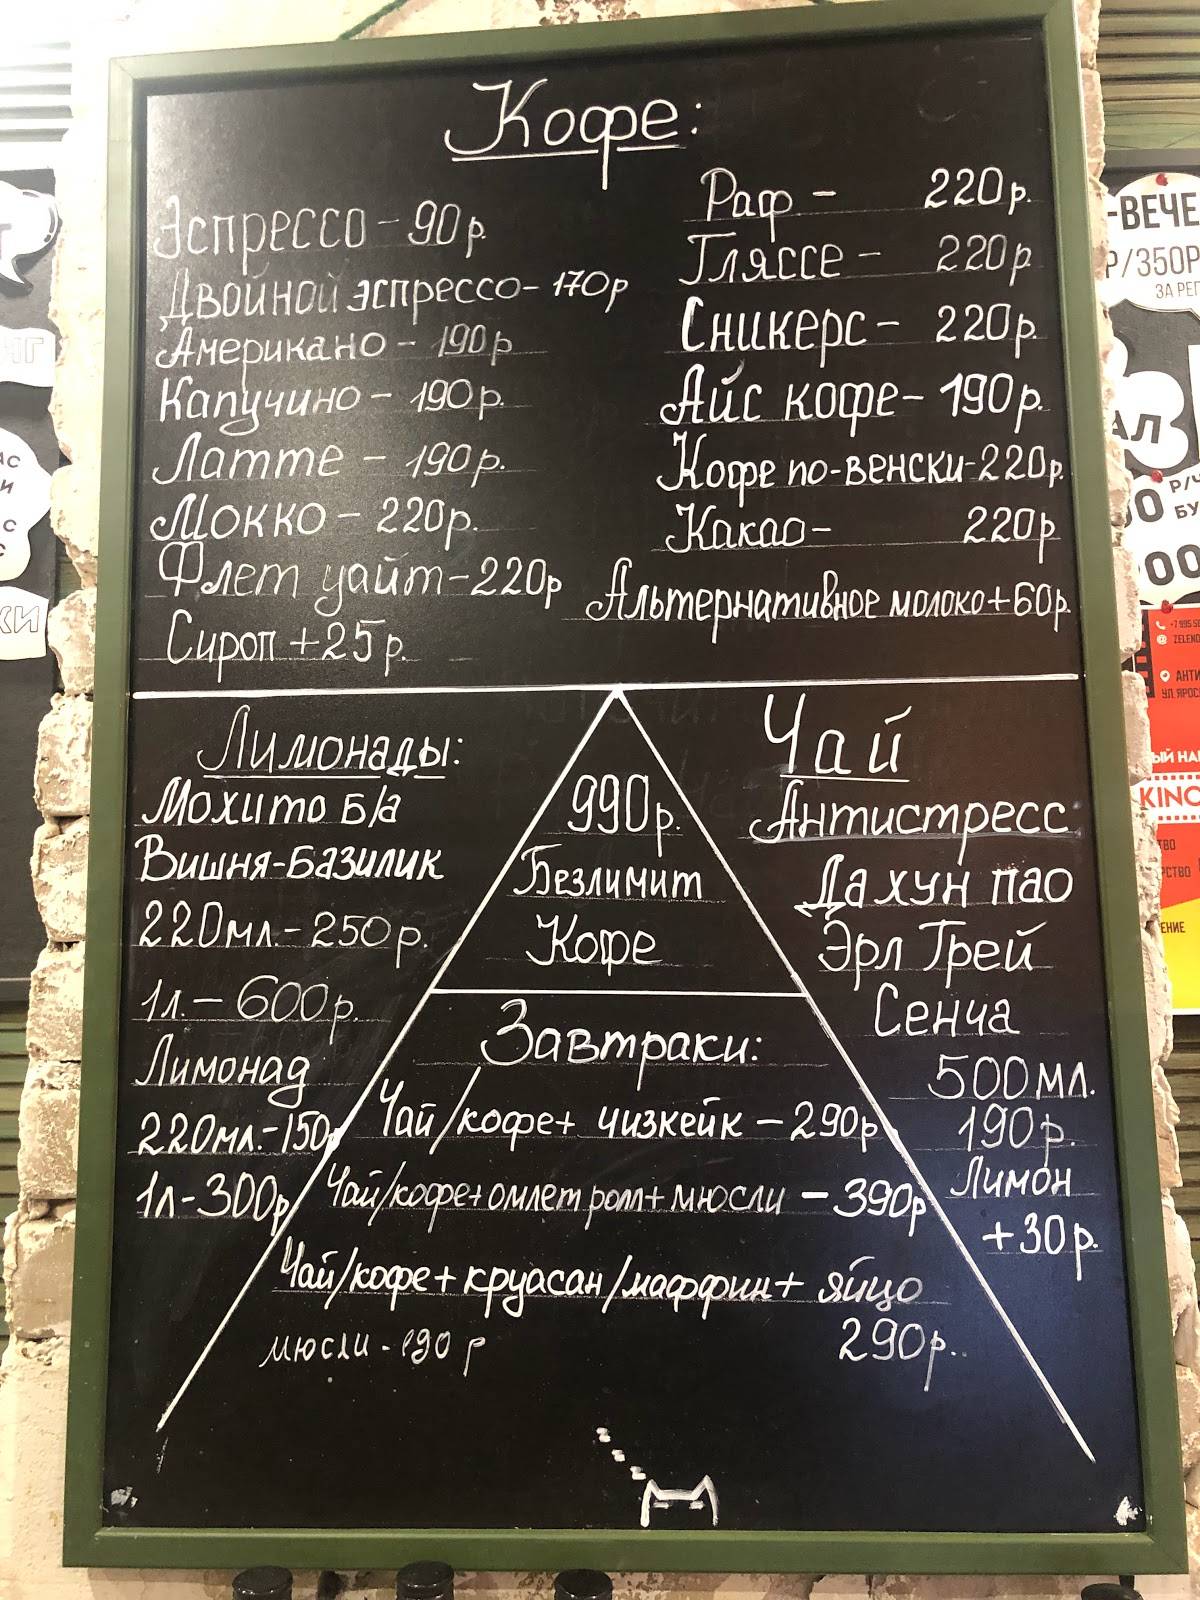 Кофе:
Эспрессо - 90р.
Двойной эспрессо - 170р
Американо - 190р
Капучино - 190р.
Латте - 190р.
Мокко - 220р.
Флет уайт - 220р
Сироп + 25р.
Раф - 220р.
Гляссе - 220р
Сникерс - 220р.
Айс кофе - 190р.
Кофе по-венски - 220р.
Какао - 220р
Альтернативное молоко + 60р.
Лимонады:
Мохито б/а
Вишня-Базилик
220мл. - 250р.
1л. - 600р.
Лимонад
220мл. - 150р
1л - 300р
990р.
Безлимит
Кофе
Завтраки:
Чай/кофе + чизкейк - 290р
Чай/кофе + омлет ролл + мюсли - 390р
Чай/кофе + круасан/маффин + яйцо
290р..
мюсли - 190 р
Чай
Антистресс
Да хун пао
Эрл Грей
Сенча
500мл.
190р.
Лимон
+30р.
-ВЕЧЕ
Р/350Р
ЗА РЕГ
АЛ
Р/Ч
БУ
АНТИ
УЛ. ЯРОС
ЫЙ НАІ
KINO
ТВО
РСТВО
ЕНИЕ